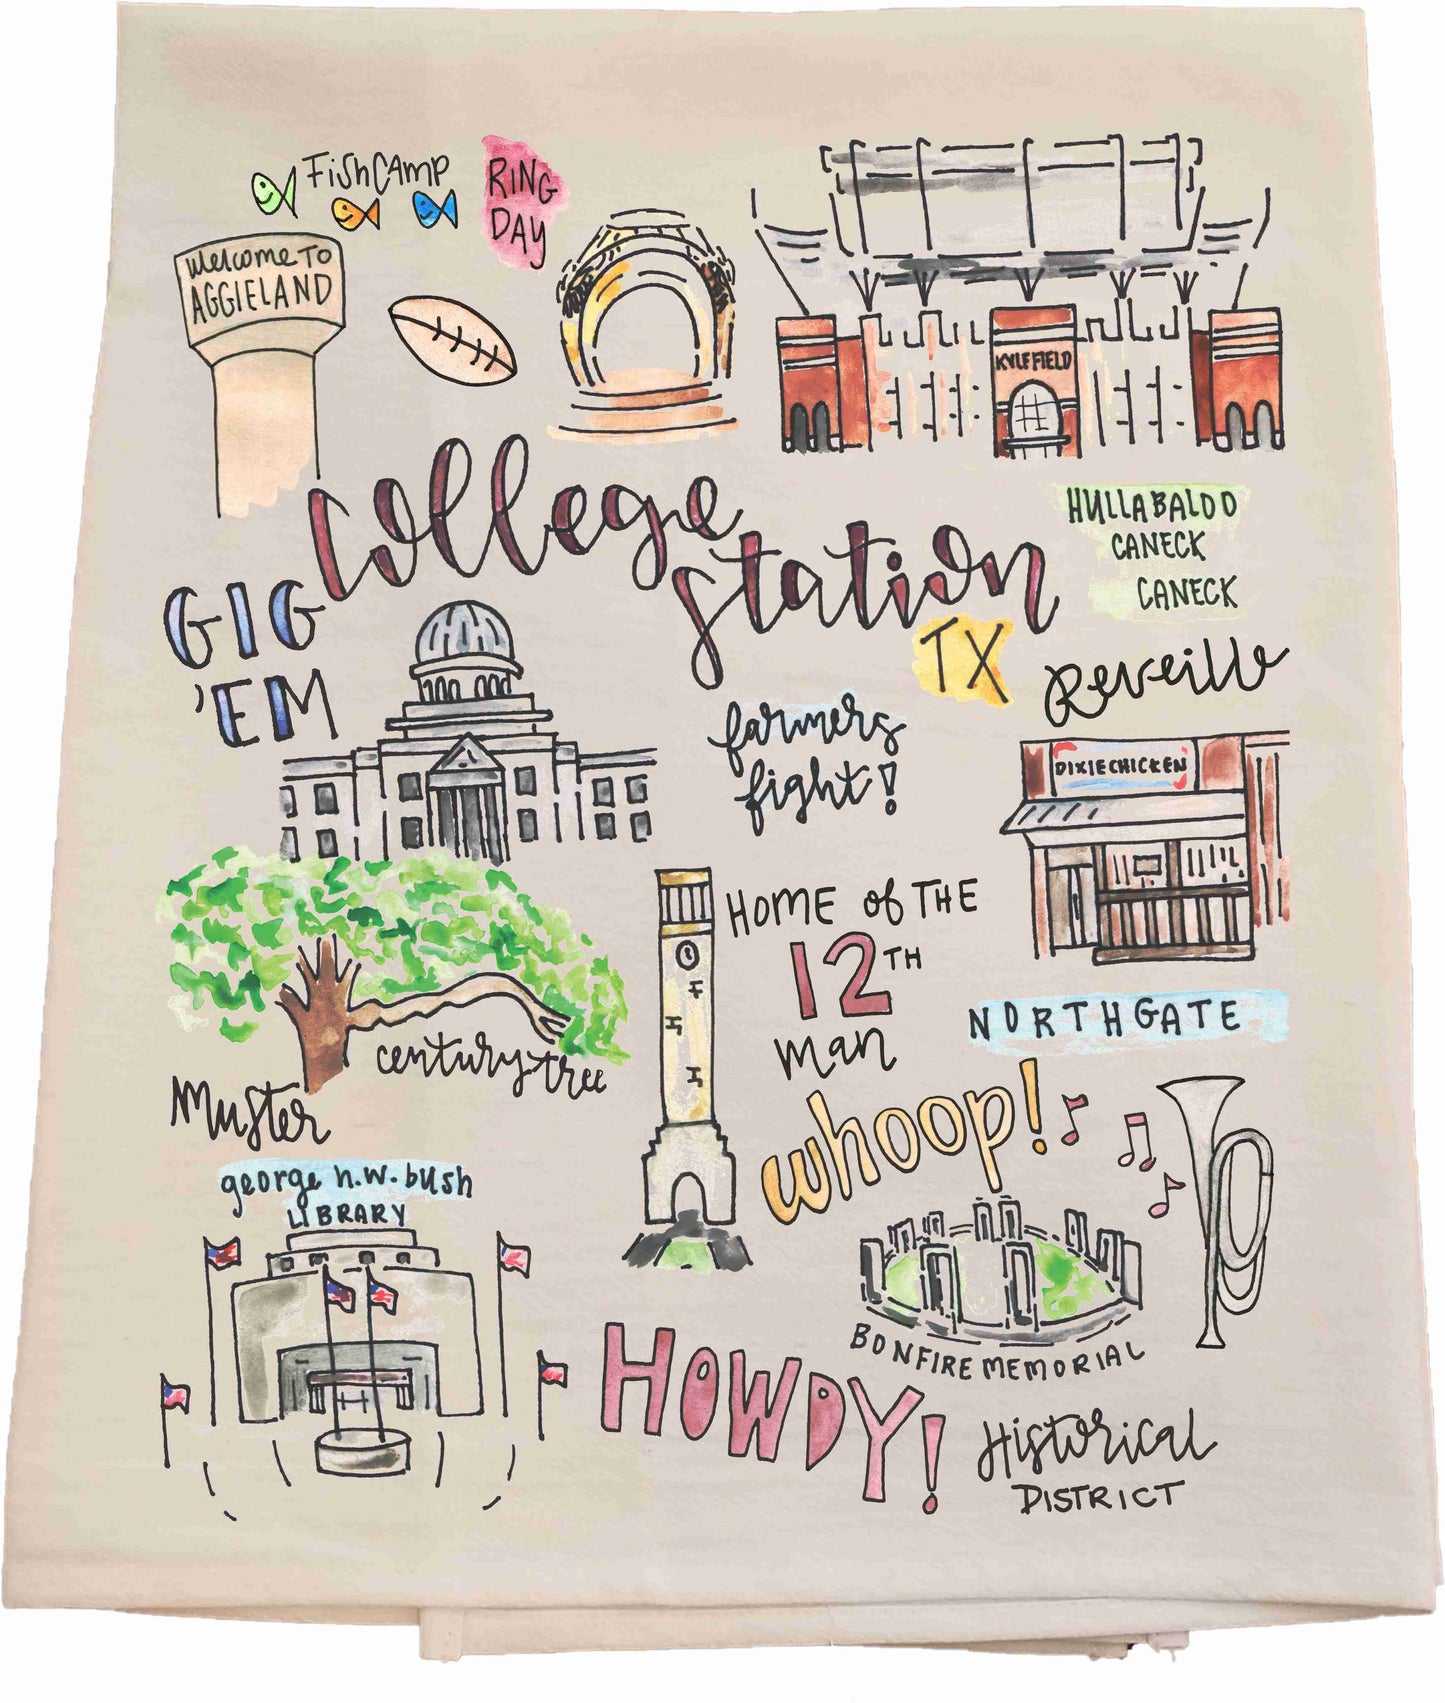 FishCamp
RING
DAY
Welcome To
AGGIELAND
KYLE FIELD
College
Station
TX
HULLABALOO
CANECK
CANECK
GIG
'EM
Reveille
farmers
fight!
DIXIE CHICKEN
HOME of THE
12TH
man
NORTHGATE
century tree
Muster
whoop!
george h.w. bush
LIBRARY
BONFIRE MEMORIAL
HOWDY!
Historical
DISTRICT